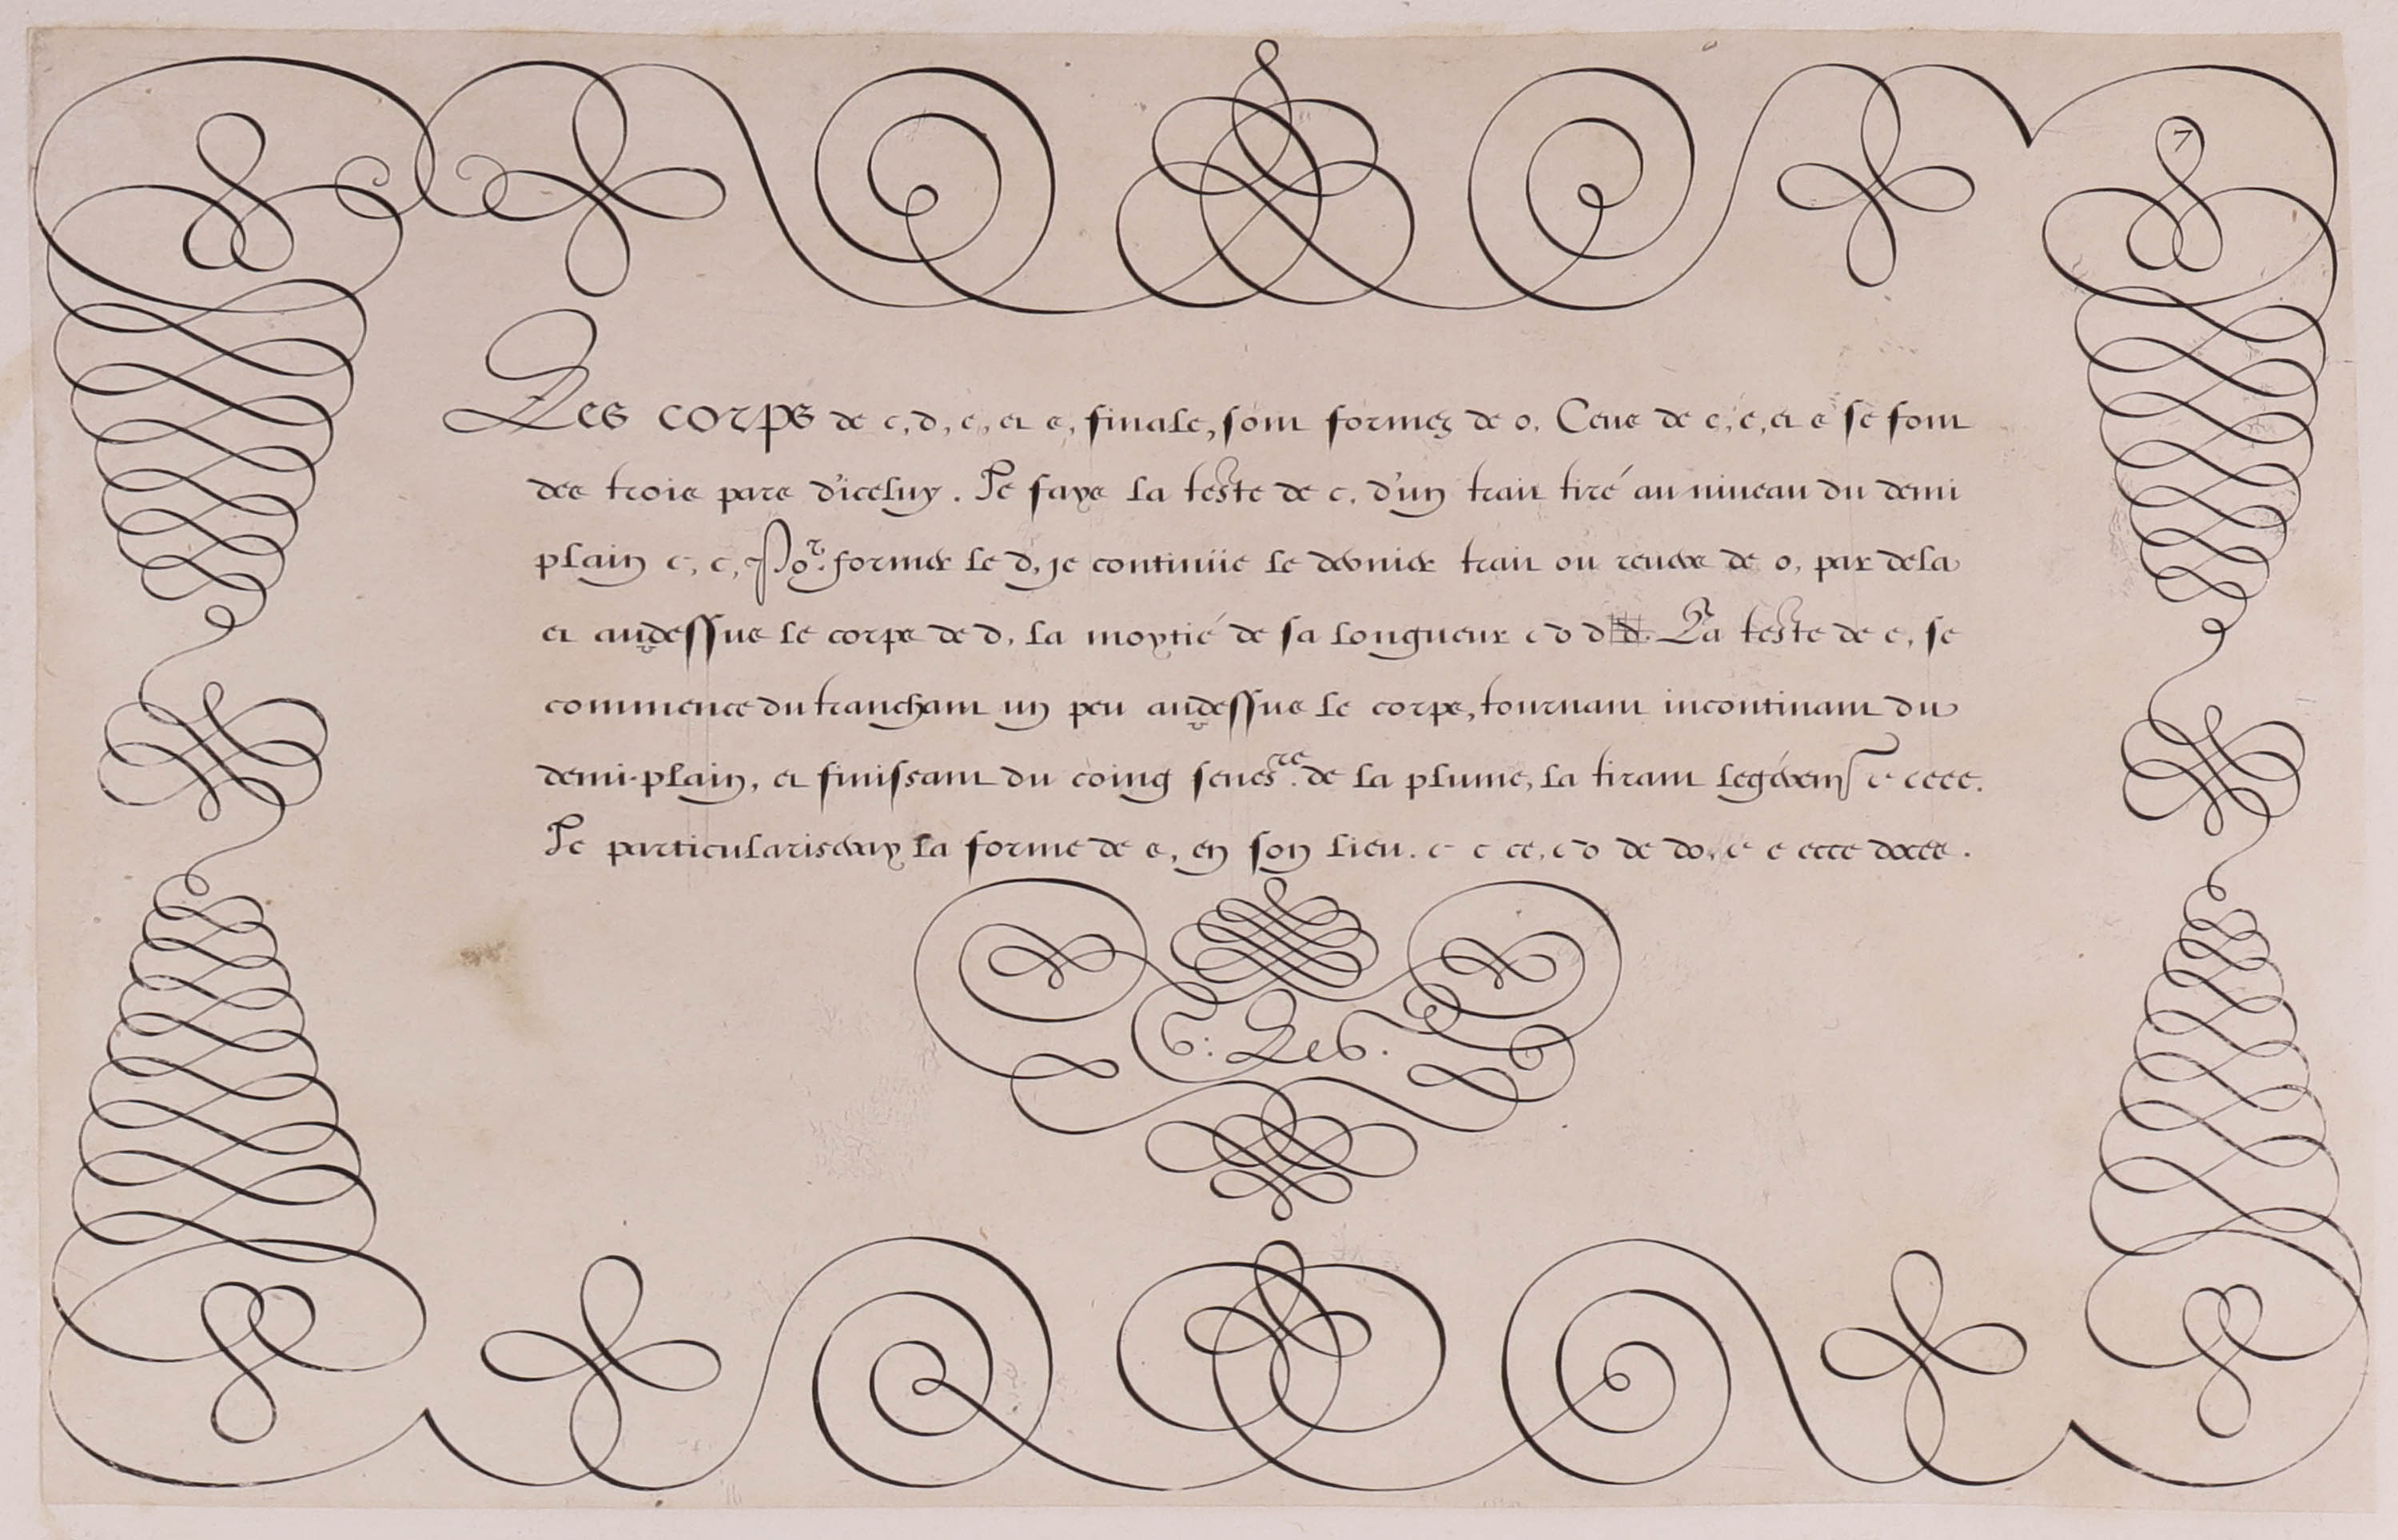 7
Les corps de c, d, e, et e, finale, sont formez de o. Ceus de c, e, et e se font
des trois pars d'iceluy. Je fays la teste de c, d'un trait tiré au niueau du demi
plain c, c, Por. former le d, je continüe le dernier trait ou reuers de o, par dela
et audessus le corps de d, la moytié de sa longueur c d d d. La teste de e, se
commence du tranchant un peu audessus le corps, tournant incontinant du
demi-plain, et finissant du coing senestre. de la plume, la tirant legéremt c ceee.
Je particulariseray la forme de e, en son lieu. c c ce, c d de do, c e
6: Les.